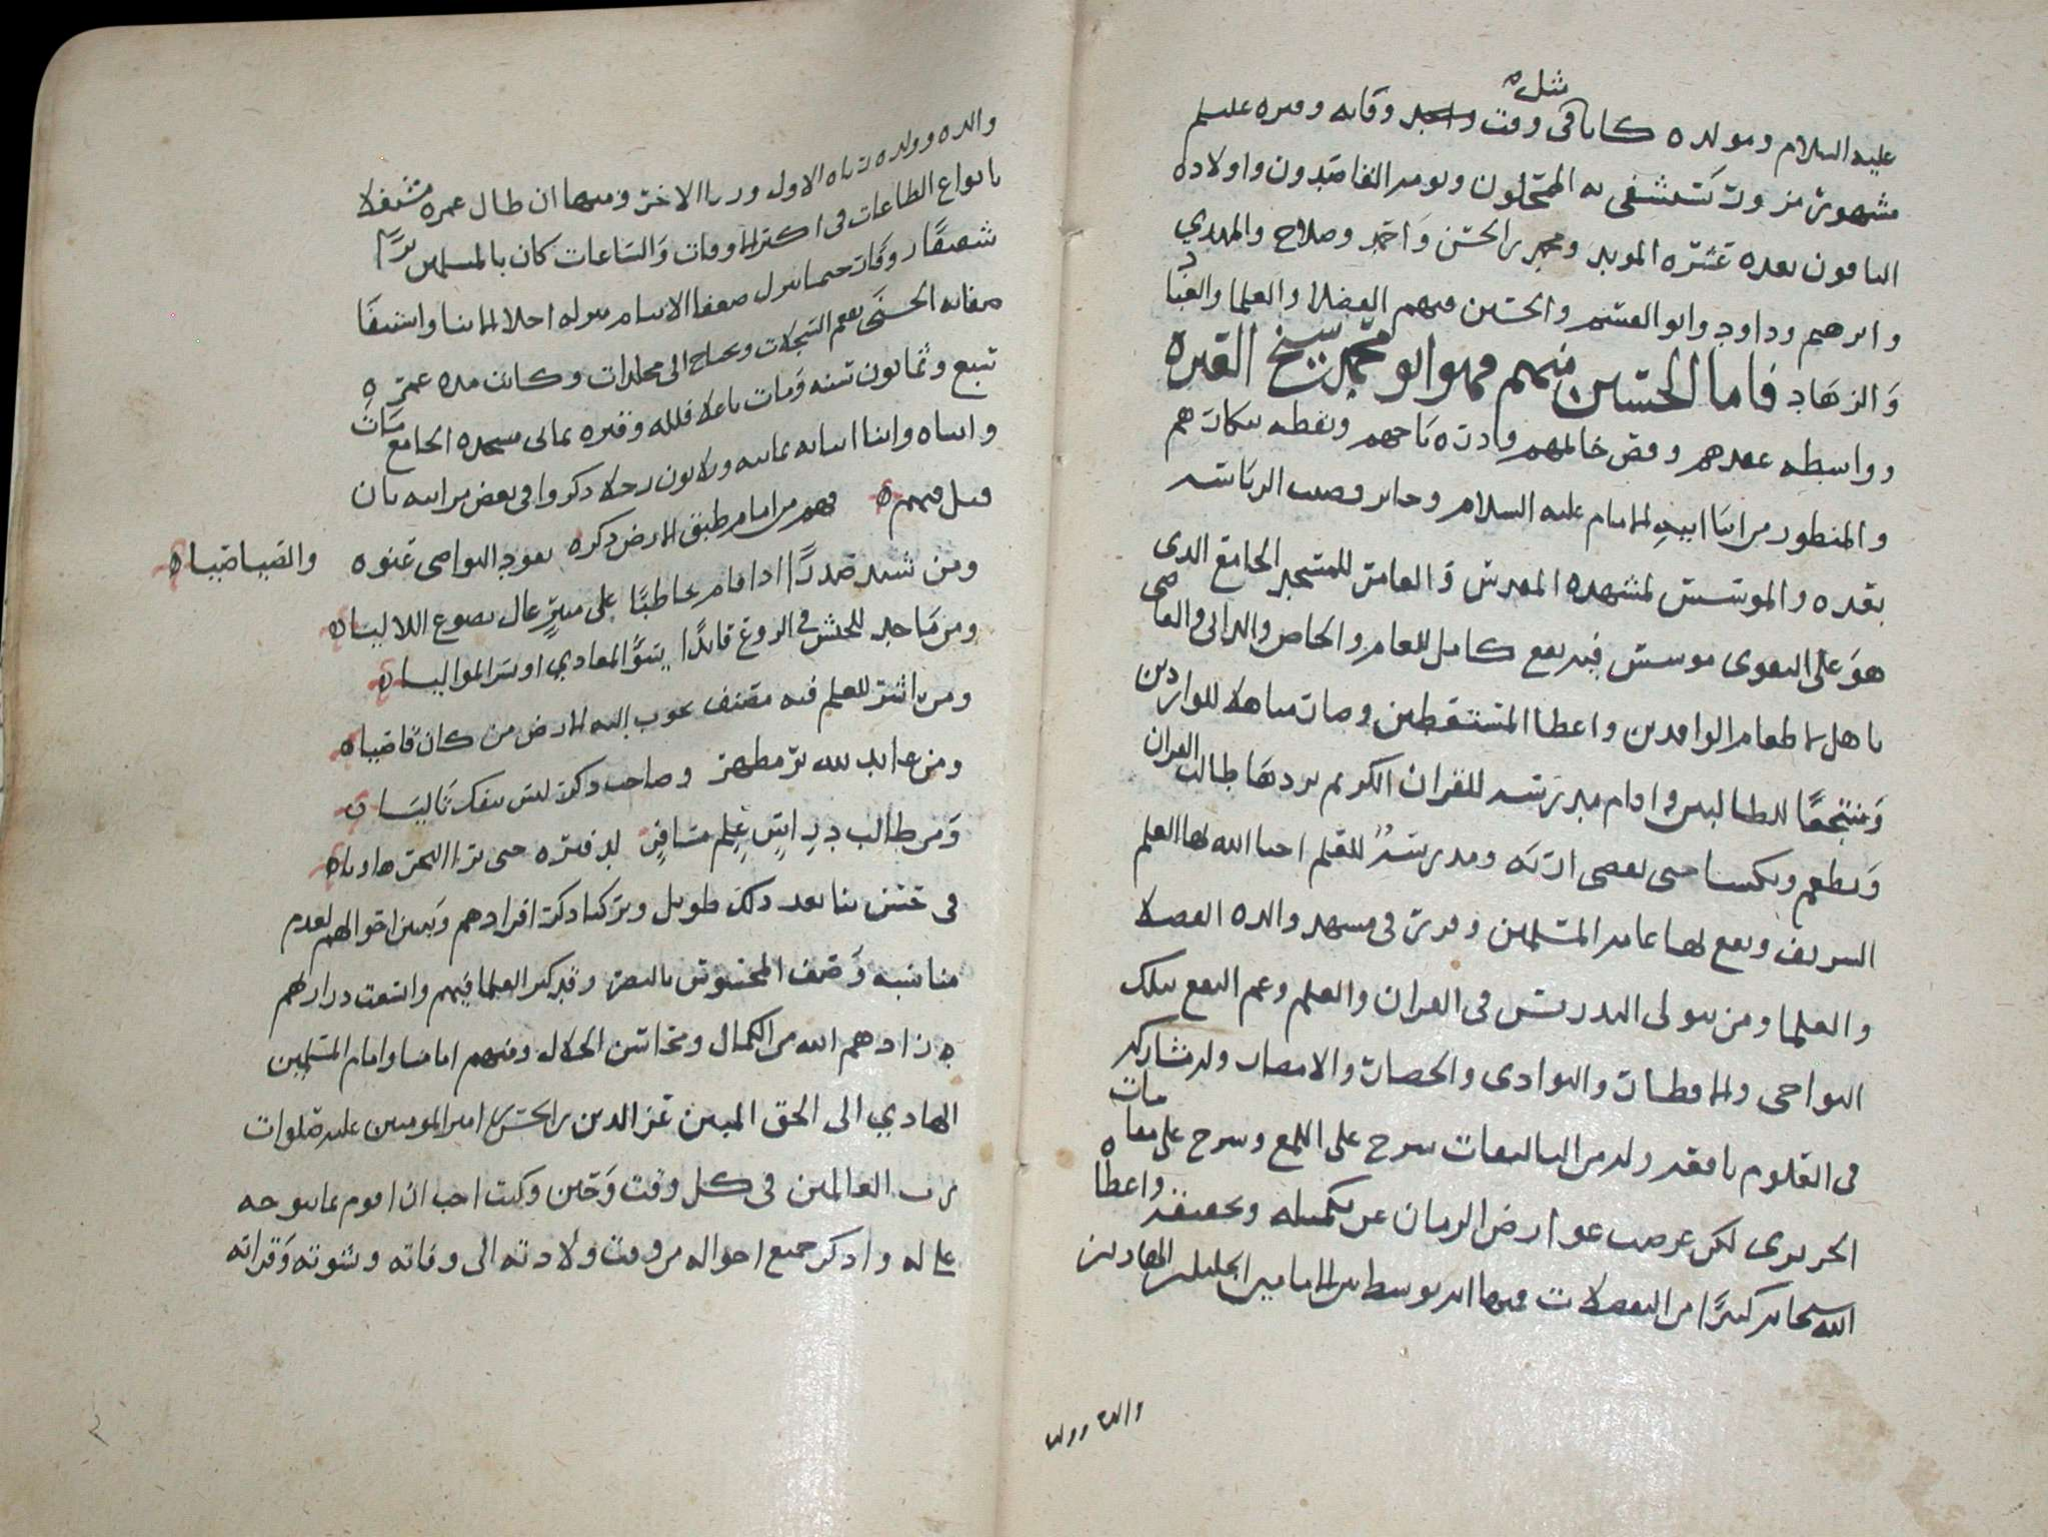 مثله
عليه السلام ومولده كانا في وقت واحد وفاته وقبره عليلم
مشهور مزور تستشفى به الممتحلون ويومه القاصدون واولاده
الباقون بعده عشره المويد ومحمد بن الحسن واحمد وصلاح والمهدي
وابرهيم وداود وابو القسم والحسين منهم الفضلا والعلما والعباد
والزهاد فاما الحسين منهم فهو ابو محمد شيخ القره
وواسطه عقدهم وفص خاتمهم ودره تاجهم ونقطه بيكارهم
والمنظور من ابنا ابيه الامام عليه السلام وحاير قصب الرياسه
بعده والموسس لمشهده المقدس والعامر للمسجد الجامع الذي
هو على التقوى موسس فيه نفع كامل للعام والخاص والداني والقاصي
تاهل لاطعام الوافدين واعطا المستقطين وصار مناهلا للواردين
ومنتجعا للطالبين واقام مدرسه للقران الكريم يردها طالب القران
ويطعم ويكسا حتى يقضي اربه ومدرسه للعلم احيا الله بها العلم
الشريف ونفع بها عامه المسلمين وقرئ في مشهد والده الفضلا
والعلما ومن يتولى التدريس في القران والعلم وعم النفع بتلك
النواحي والاقطار والبوادي والحضار والامصار وله مشاركه
في العلوم نافعه وله من التاليفات شرح على اللمع وشرح على مقامات
الحريري لكن عرضت عوارض الزمان عن تكميله وتحقيقه واعطاه
الله سبحانه كثيرا من التفضلات منها انه توسط بين الامامين الجليلين الهاديين
والده وولده
والده وولده تاه الاول وربا الاخر ومنها ان طال عمره مشتغلا
بانواع الطاعات في اكثر الاوقات والساعات كان بالمسلمين برا
شفيقا روفا رحيما ينزل ضعفا الانام منزله اجلا الابنا واستيفا
صفاته الحسنى يعم السجلات ويحتاج الى مجلدات وكانت مده عمره
تسع وثمانون سنه ومات باعلا فلله وقبره يماني مسجده الجامع مات
وابناه وابنا ابنايه ثمانيه وثلاثون رجلا ذكروا في بعض مراثيه بان
قيل فيهم
فهم من امام طبق الارض ذكره يقود النواصي عنوه والصياصيا
ومن سيد صدرا اذا قام خاطبا على منبر عال يصوغ اللاليا
ومن ماجد للجيش في الروع قايدا يسؤ المعادي او يسر المواليا
ومن اشتر للعلم فيه مصنف يجوب اليه الارض من كان قاضيا
ومن عابد لله بر مطهر وصاحب ذكر ليس ينفك تاليا
ومن طالب درايس علم مسافر لدفتره حتى ترا النجم هاويا
في خنس بنا بعد ذلك طويل وتركنا ذكر افرادهم وتعيين احوالهم لعدم
مناسبه وصف المحسوس بالبصر وقد كثر العلما فيهم واتسعت دراريهم
زادهم الله من الكمال ومحاسن الخلال ومنهم امامنا وامام المسلمين
الهادي الى الحق المبين عز الدين بن الحسن بن امير المومنين عليه صلوات
رب العالمين في كل وقت وحين وكنت احب ان اقوم بما يتوجه
علي له واذكر جميع احواله من وقت ولادته الى وفاته ونشوته وقراته